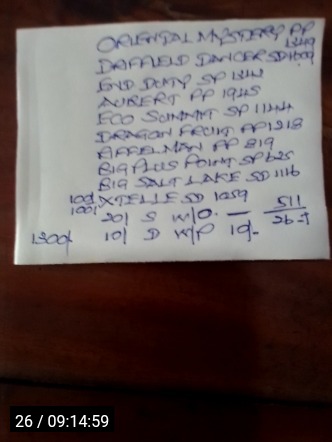 ORIENTAL MYSTERY PP 1349
DAFFIELD DANCER SD 1609
END DUTY SP
AUBERT PP 1945
ECO SUMMIT SP 1144
DRAGON FRUIT PP 1218
APPELMAN PP 819
BIG PLUS POINT SP 625
BIG SALT LAKE SD 1116
100/ 100/ XTELLE SD 1059
20/ S W/O. — 511
1300/ 10/ D W/P 10/-
26 / 09:14:59